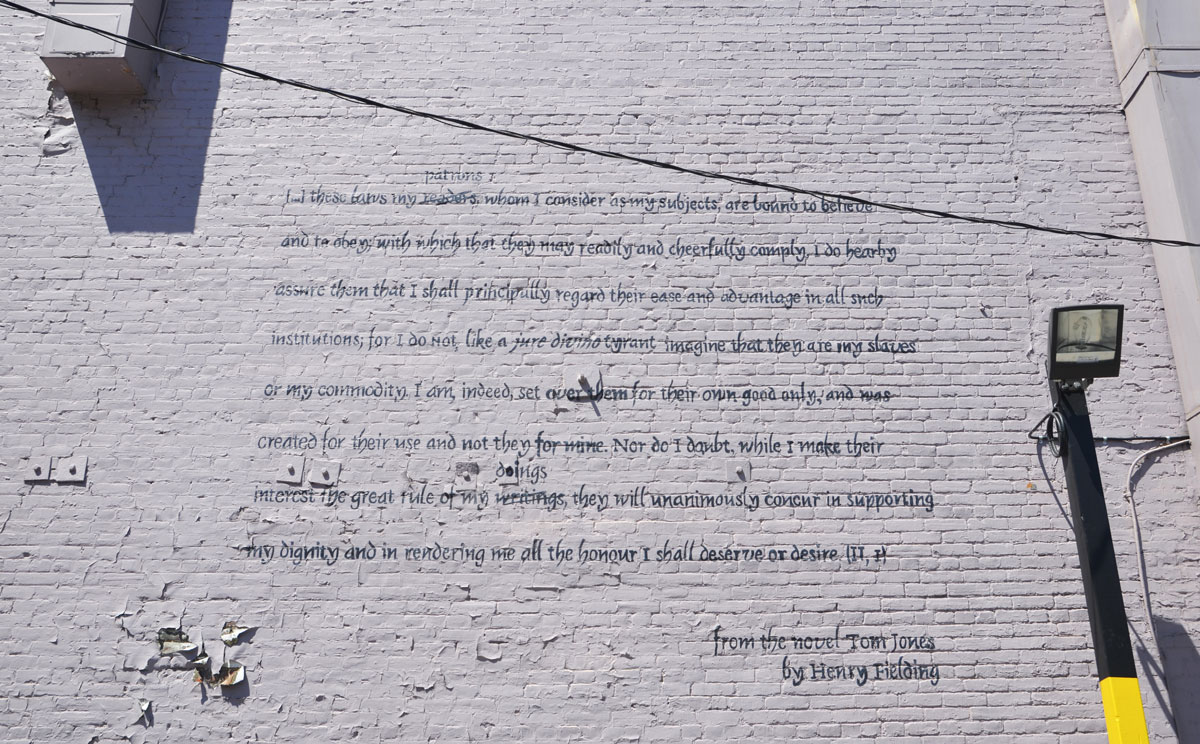 patrons
[...] these laws my readers, whom I consider as my subjects, are bound to believe
and to obey; with which that they may readily and cheerfully comply, I do hearby
assure them that I shall principally regard their ease and advantage in all such
institutions; for I do not, like a jure divino tyrant, imagine that they are my slaves
or my commodity. I am, indeed, set over them for their own good only, and was
created for their use and not they for mine. Nor do I doubt, while I make their
doings
interest the great rule of my writings, they will unanimously concur in supporting
my dignity and in rendering me all the honour I shall deserve or desire. (II, I)
from the novel Tom Jones
by Henry Fielding